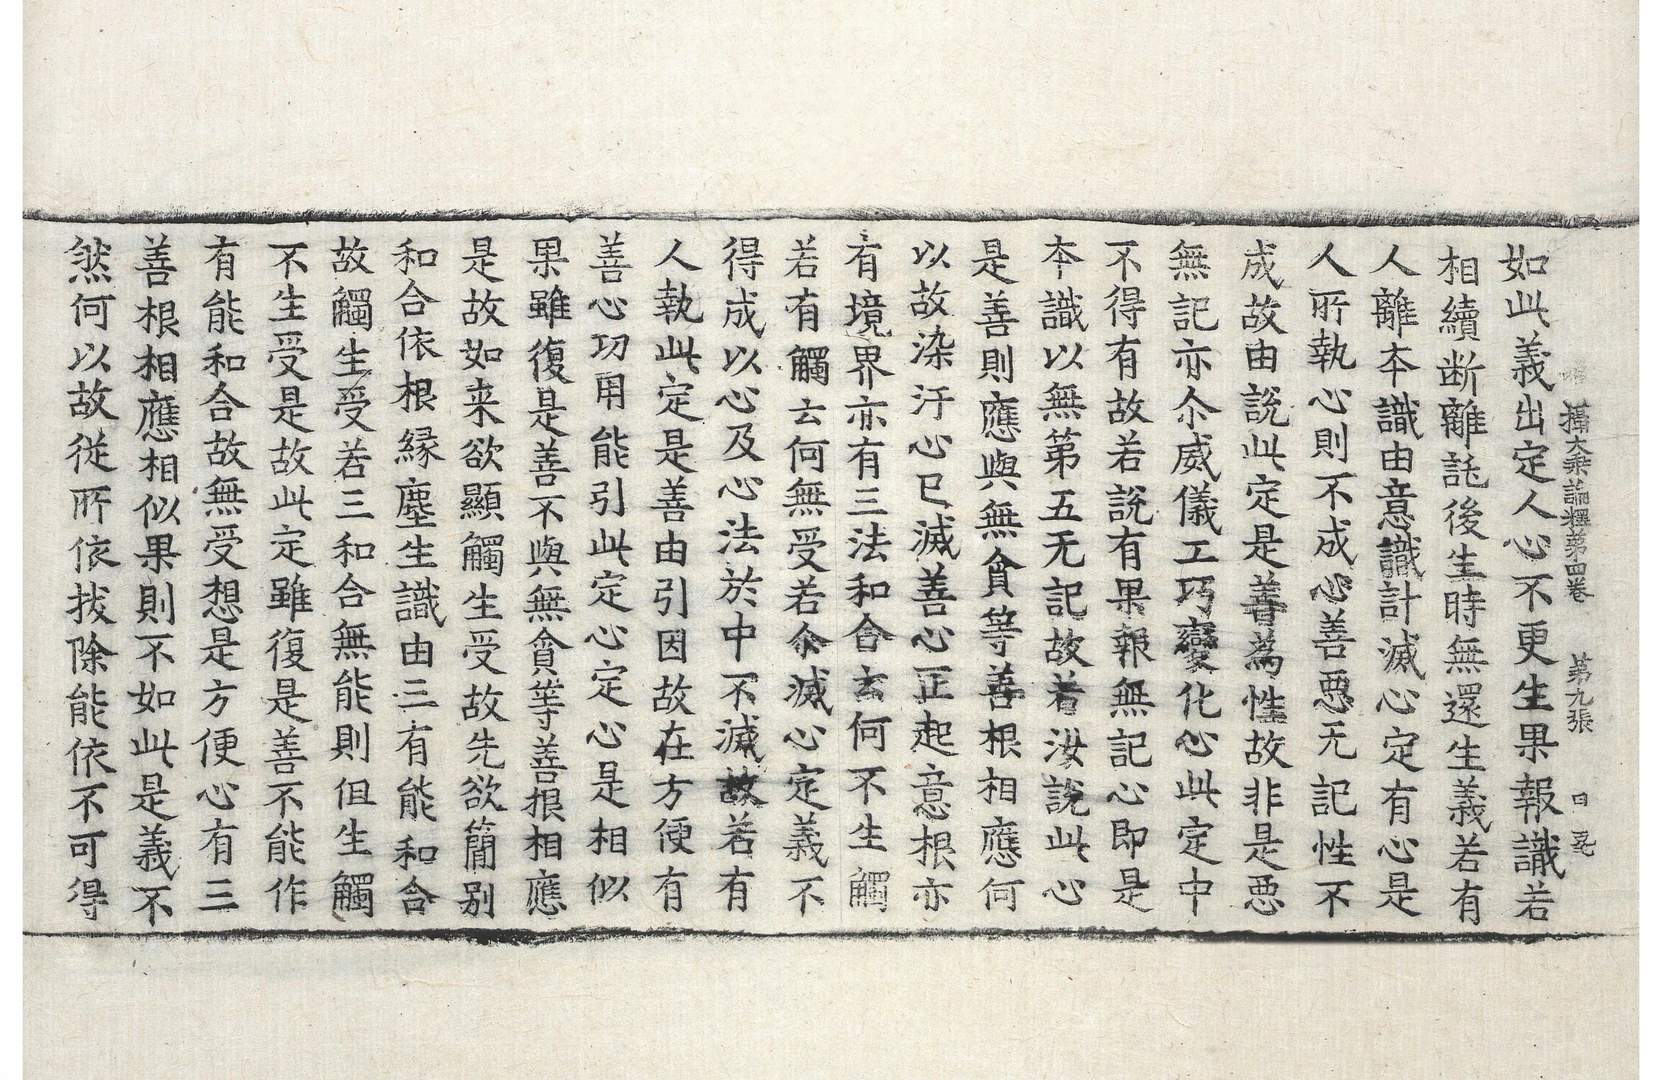 攝大乘論釋第四卷　第九張
如此義出定人心不更生果報識若
相續断離託後生時無還生義若有
人離本識由意識計滅心定有心是
人所執心則不成心善惡无記性不
成故由說此定是善爲性故非是惡
無記亦尒威儀工巧變化心此定中
不得有故若說有果報無記心即是
本識以無第五无記故若汝說此心
是善則應與無貪等善根相應何
以故染汙心已滅善心正起意根亦
有境界亦有三法和合云何不生觸
若有觸云何無受若尒滅心定義不
得成以心及心法於中不滅故若有
人執此定是善由引因故在方便有
善心功用能引此定心定心是相似
果雖復是善不與無貪等善根相應
是故如来欲顯觸生受故先欲簡別
和合依根縁塵生識由三有能和合
故觸生受若三和合無能則但生觸
不生受是故此定雖復是善不能作
有能和合故無受想是方便心有三
善根相應相似果則不如此是義不
然何以故從所依拔除能依不可得